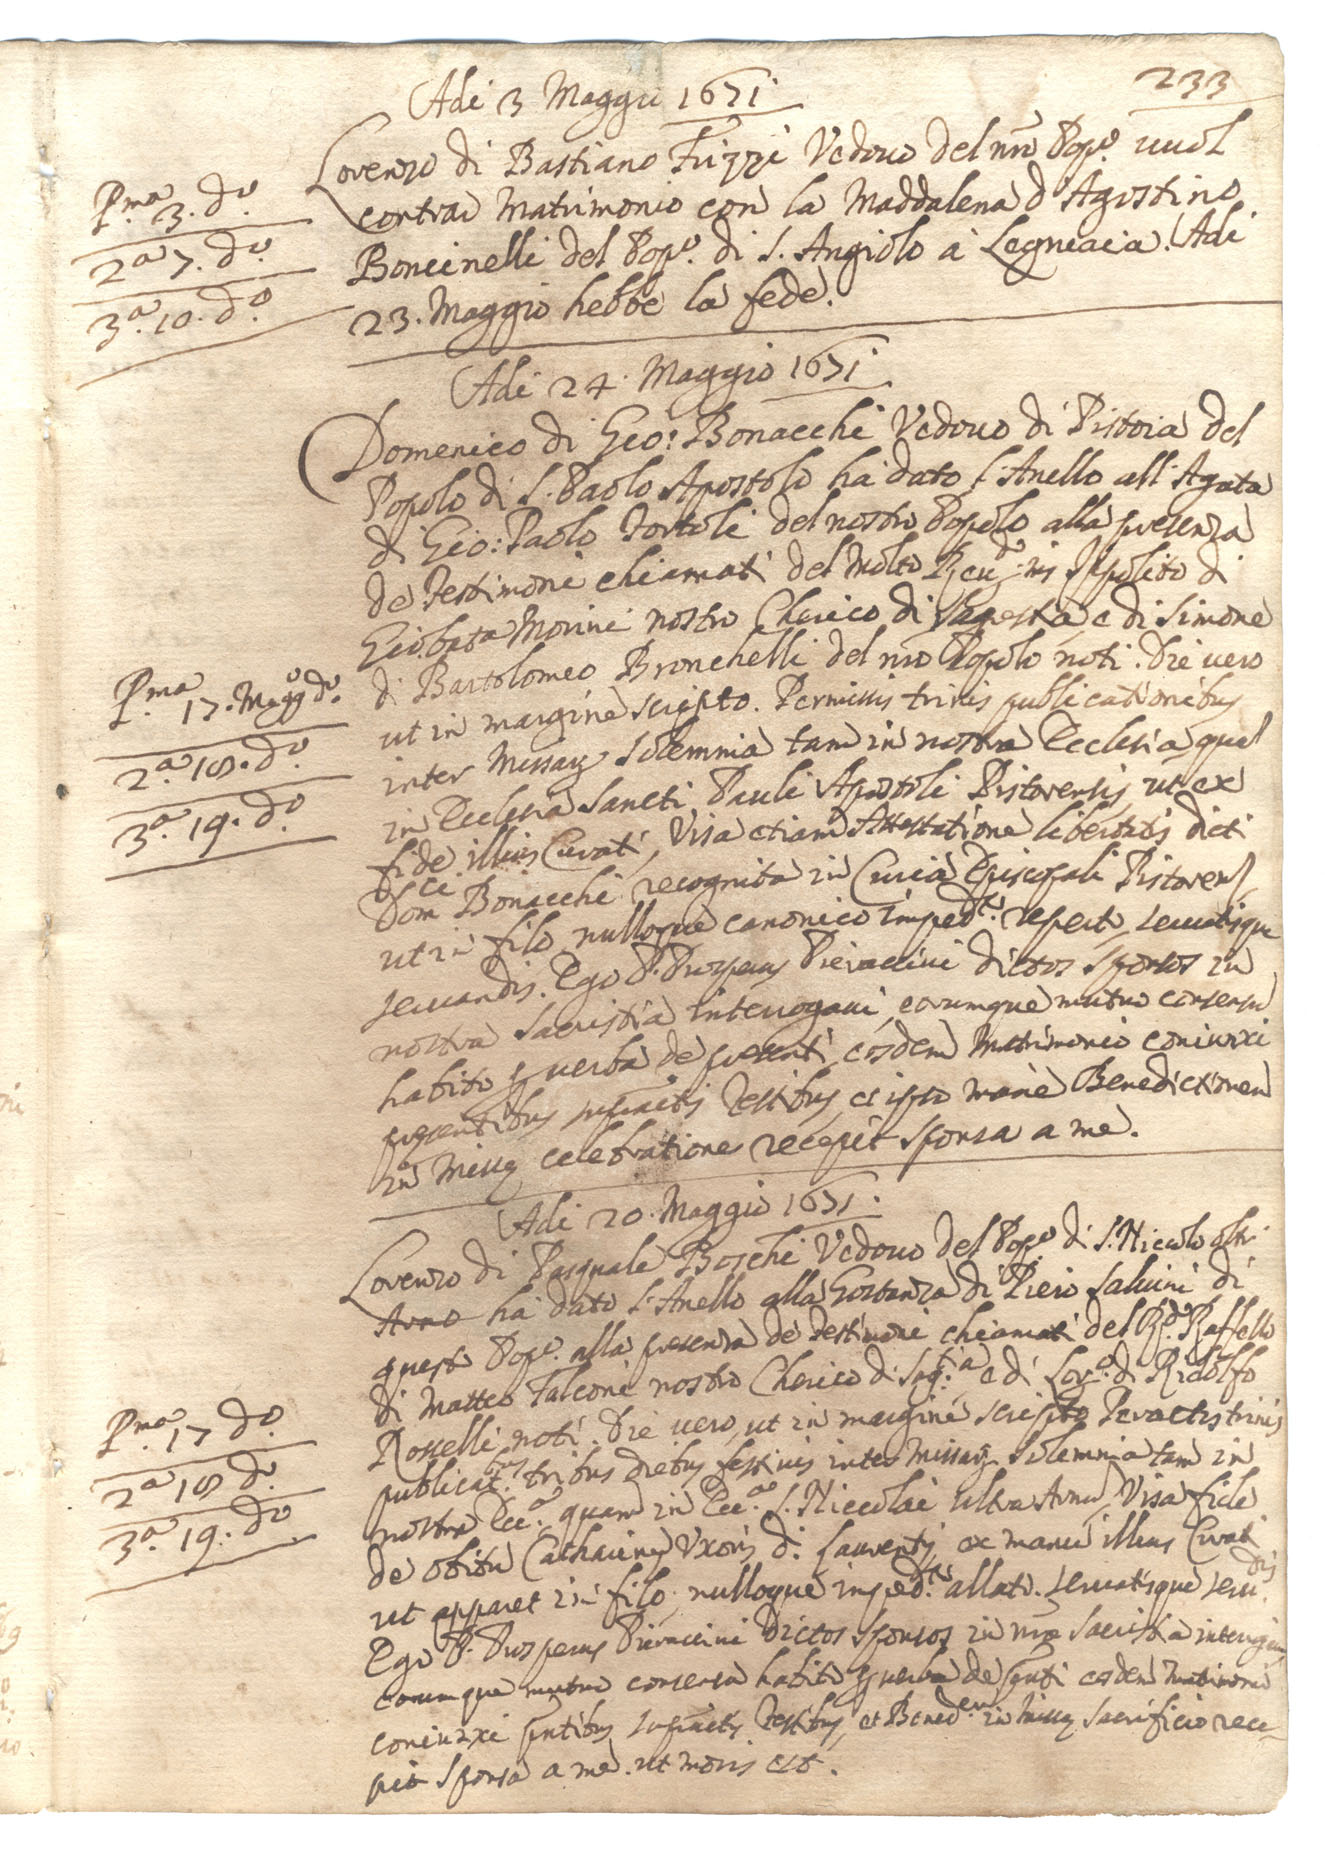 233
Adi 3 Maggio 1671
Lorenzo di Bastiano Frizzi Vedovo del nro Popo. vuol
contrar Matrimonio con la Maddalena d'Agostino
Boncinelli del Popo. di S. Angiolo a Legniaia. Adi
23. Maggio hebbe la fede.
P.ma 3. do.
2a 7. do.
3a. 10. do.
Adi 24. Maggio 1671
Domenico di Gio: Bonacchi Vedovo di Pistoia del
Popolo di S. Paolo Apostolo ha dato l'Anello all'Agata
di Gio: Paolo Tortoli del nostro Popolo alla presenza
de Testimoni chiamati del Molto Reu.do Ippolito di
Gio:bata Morini nostro Cherico di Sagrestia, e di Simone
di Bartolomeo Bronchelli del nro Popolo noti. Die vero
ut in margine scripto. Permissis trinis publicationibus
inter Missarum solemnia tam in nostra Ecclesia, quam
in Ecclesia Sancti Pauli Apostoli Pistoriensis, ut ex
fide illius Curati, Visa etiam Attestatione libertatis dicti
Domci Bonacchi recognita in Curia Episcopali Pistorien.
ut in filo, nulloque canonico imped.to reperto, servatisque
servandis. Ego P. Prosperus Pieraccini dictos sponsos in
nostra sacristia interrogavi, eorumque mutuo consensu
habito per verba de presenti, eosdem Matrimonio coniunxi
presentibus supradictis Testibus, et ipso mane Benedictionem
in Missae celebratione recepit sponsa a me.
P.ma 17. Magg. do.
2.a 18. do.
3.a 19. do.
Adi 20. Maggio 1671.
Lorenzo di Pasquale Boschi Vedovo del Popo di S. Niccolo oltr'
Arno ha dato l'Anello alla Gostanza di Piero Salvini di
questo Popo. alla presenza de Testimoni chiamati del R.do Raffello
di Matteo Falconi nostro Cherico di Sag.tia, e di Lor.o di Ridolfo
Rosselli noti. Die vero, ut in margine scripto Peractis trinis
publicat.bus tribus diebus festivis inter Missarum solemnia tam in
nostra Ecc.a quam in Ecc.a S. Niccolai ultra Arnum, Visa fide
de obitu Catharine Uxoris d. Laurentij, ex manu illius Curati
ut apparet in filo, nulloque imped.to allato. servatisque serv.dis
Ego P. Prosperus Pieraccini Dictos sponsos in nra sacristia interrogavi,
eorumque mutuo consensu habito per verba de pnti eosdem Matrimonio
coniunxi pntibus supradictis Testibus, et Bened.em in Missae sacrificio rece-
pit sponsa a me. ut moris est.
P.ma 17 do.
2.a 18 do.
3.a 19. do